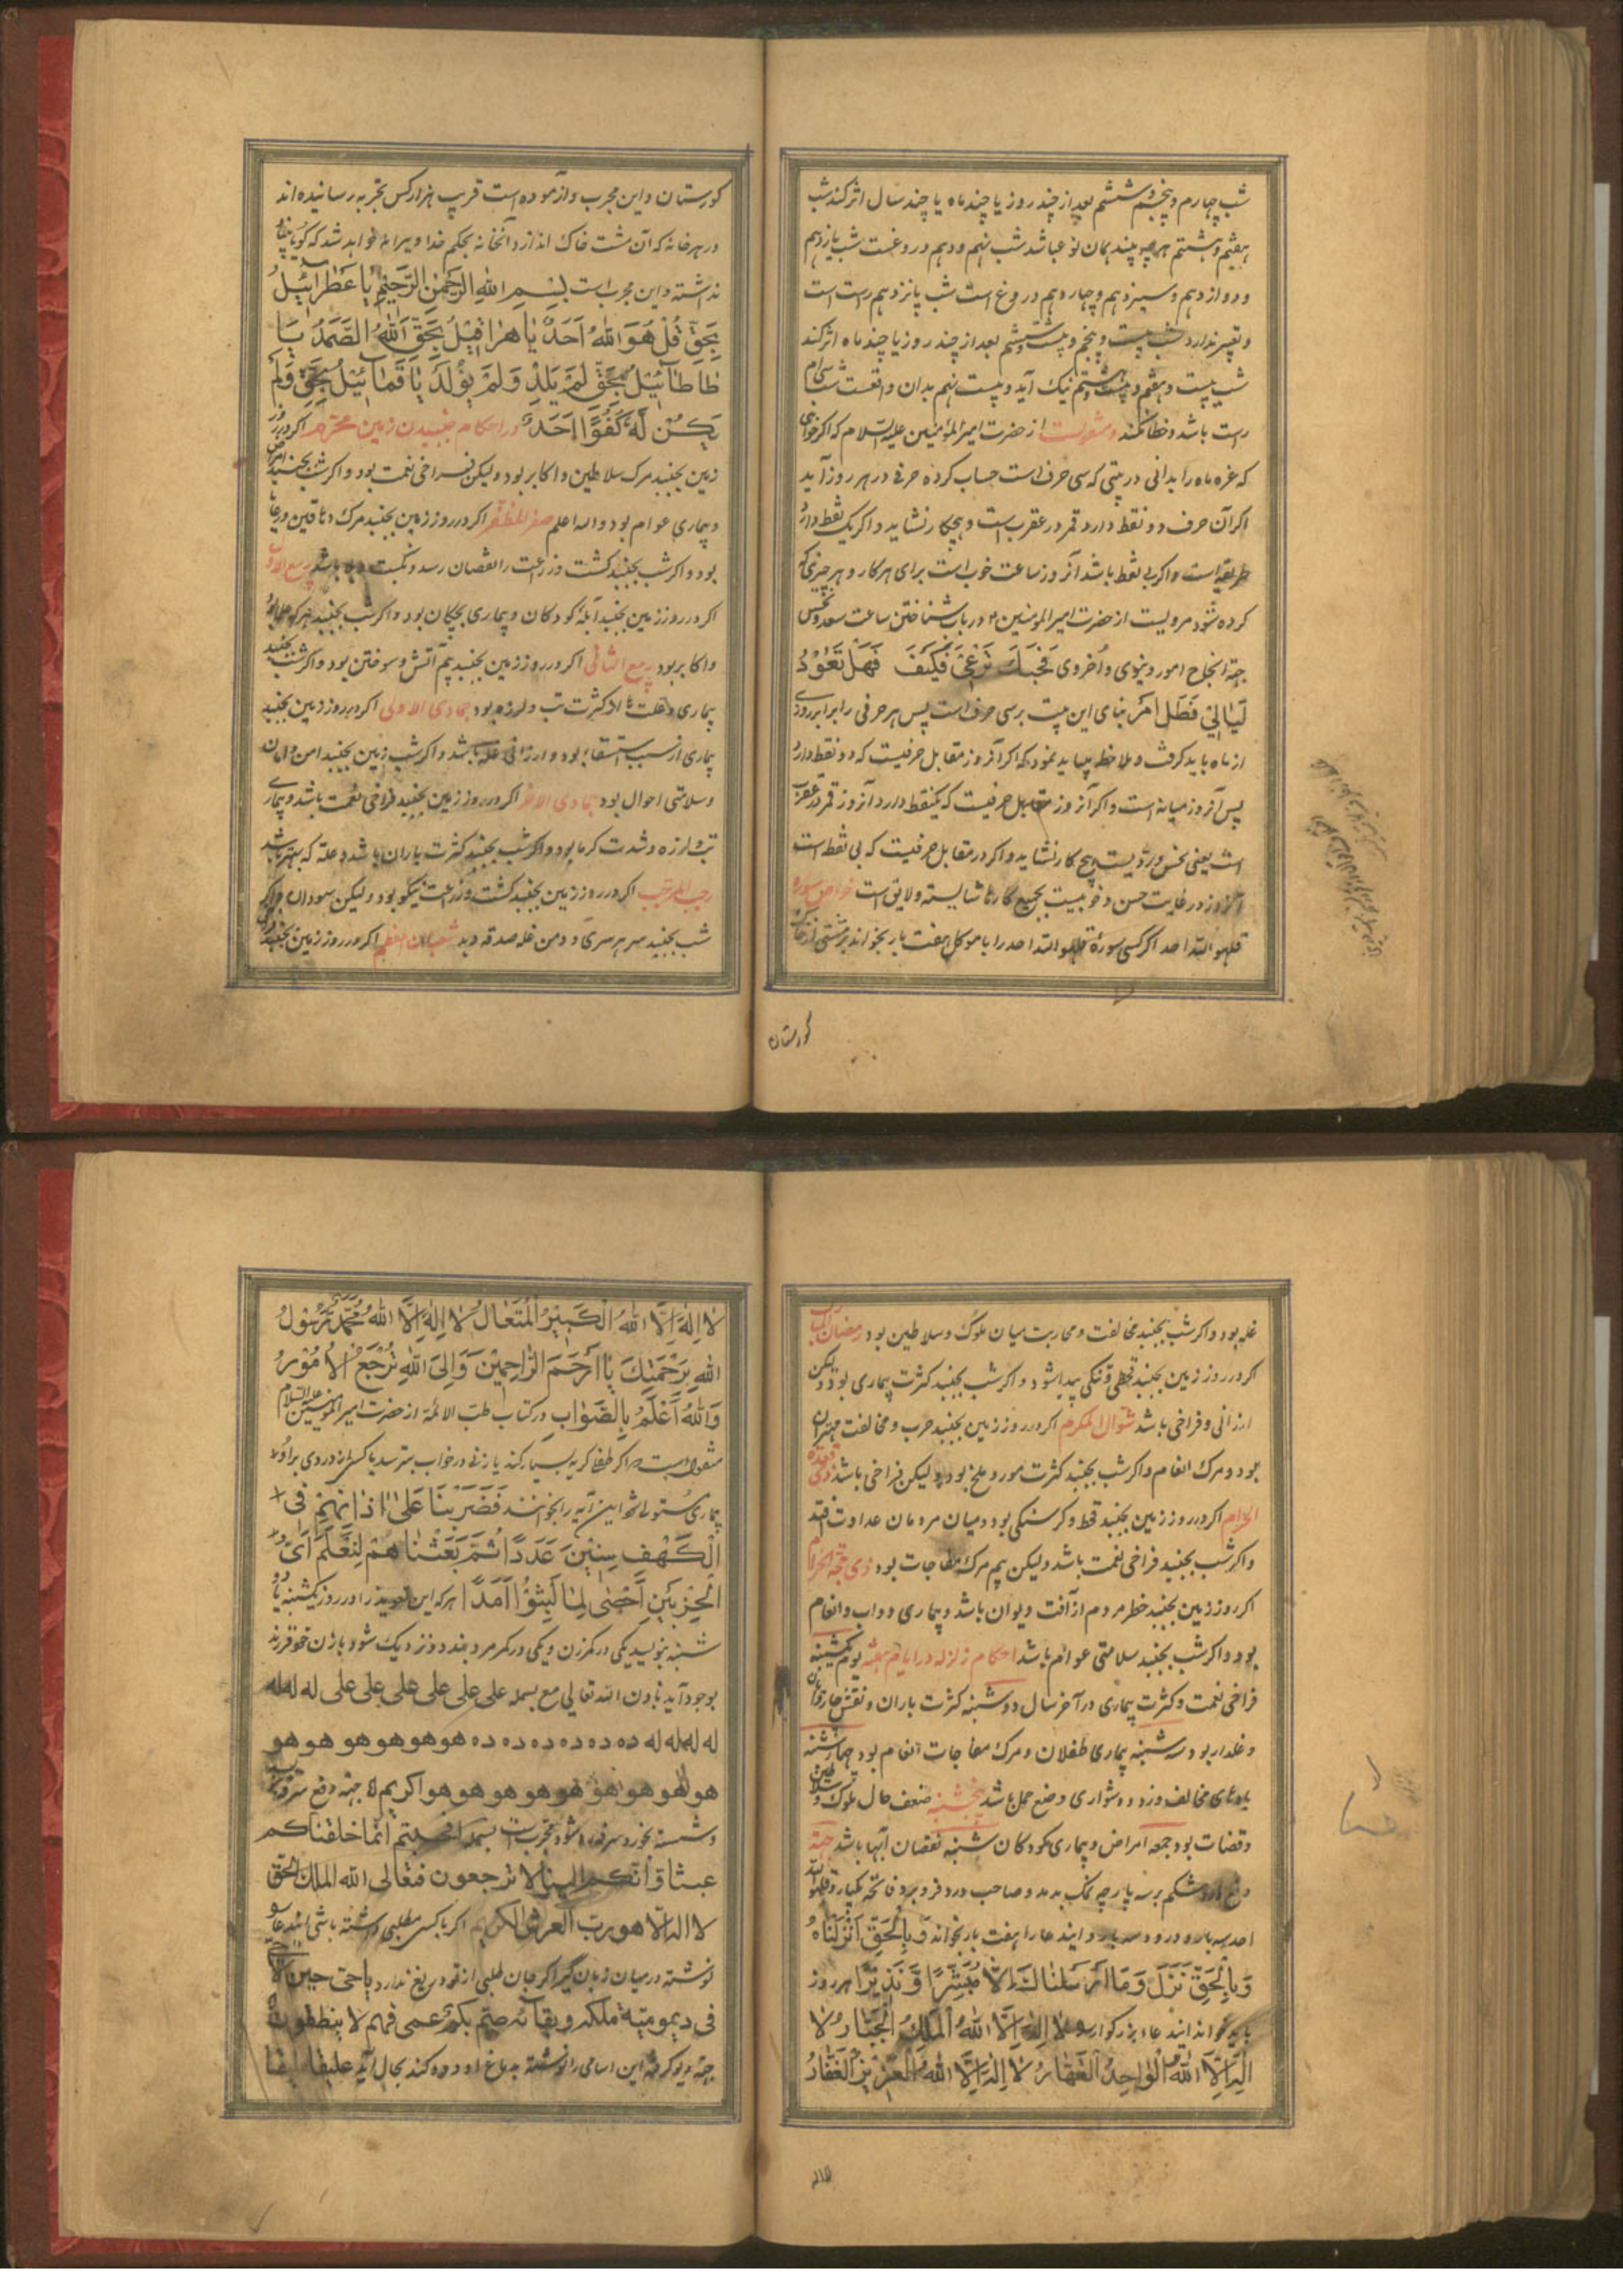 شب چهارم و پنجم و ششم بعد از چند روز یا چند ماه یا چند سال اثر کند شب
هفتم و هشتم هرچه بیند همان نوع باشد شب نهم و دهم دروغست شب یازدهم
و دوازدهم و سیزدهم و چهاردهم دروغ است شب پانزدهم راست است
و تعبیر ندارد شب بیست و پنجم و بیست و ششم بعد از چند روز یا چند ماه اثر کند
شب بیست و هفتم و بیست و هشتم نیک آید و بیست نهم بدان واقعست شب سی ام
راست باشد و خطا نکند و منقولست از حضرت امیرالمؤمنین علیه السلام که اگر خواهی
که غره ماه را بدانی در بیتی که سی حرف است حساب کرده حرفی در هر روز آید
اگر آن حرف دو نقطه دارد قمر در عقرب است و هیچکار نشاید و اگر یک نقطه دارد
طریقه است و اگر بی نقطه باشد آنروز ساعت خوب است برای هر کار و هر چیزی که
کرده شود مرویست از حضرت امیرالمؤمنین ۴ در باب شناختن ساعت سعد و نحس
جهة انجاح امور دنیوی و اخروی فَحُبُّكَ نَرْغَبُ فَكَيْفَ فَهَلْ تَعُودُ
لَيَالِيَ فَطَلَ امر بنای این بیت بر سی حرف است پس هر حرفی را برابر روزی
از ماه باید گرفت و ملاحظه بباید نمود که اگر آنروز مقابل حرفیست که دو نقطه دارد
پس آنروز میانه است و اگر آنروز مقابل حرفیست که یکنقطه دارد آنروز قمر در عقرب
است یعنی نحس و ردیست هیچ کار نشاید و اگر در مقابل حرفیست که بی نقطه است
آنروز در غایت حسن و خوبیست بجمیع کارها شایسته و لایق است خواص سوره
قلهو الله احد اگر کسی سورهٔ قلهو الله احد را با موکل هفت بار بخواند بر مشتی از خاک
کورستان
کورستان و این مجرب و آزموده است قریب هزار کس تجربه رسانیده اند
در هر خانه که آن مشت خاک اندازد آنخانه بحکم خدا ویرانه خواهد شد که گویا بقا
نداشته و این مجرب است بِسْمِ اللهِ الرَّحْمٰنِ الرَّحِيْمِ يَا عَطْرَائِيْلُ
بِحَقِّ قُلْ هُوَ اللهُ اَحَدٌ يَا هٰرَافِيْلُ بِحَقِّ اَللهُ الصَّمَدُ يَا
طَاطَائِيْلُ بِحَقِّ لَمْ يَلِدْ وَلَمْ يُوْلَدْ يَا قَمَائِيْلُ بِحَقِّ وَلَمْ
يَكُنْ لَهُ كُفُوًا اَحَدٌ در احکام جنبیدن زمین محرم اگر در روز
زمین بجنبد مرگ سلاطین و اکابر بود ولیکن فراخی نعمت بود و اگر شب بجنبد امراض
و بیماری عوام بود والله اعلم صفر المظفر اگر در روز زمین بجنبد مرگ دهاقین و رعایا
بود و اگر شب بجنبد کشت و زراعت را نقصان رسد و نکبت و بلا باشد ربیع الاول
اگر در روز زمین بجنبد آبله کودکان و بیماری بچکان بود و اگر شب بجنبد مرگ علما بود
و اکابر بود ربیع الثانی اگر در روز زمین بجنبد بیم آتش و سوختن بود و اگر شب بجنبد
بیماری و علت ها از کثرت تب و لرزه بود جمادی الاولی اگر در روز زمین بجنبد
بیماری از سبب استسقا بود و ارزانی غله باشد و اگر شب زمین بجنبد امن و امان
و سلامتی احوال بود جمادی الاخر اگر در روز زمین بجنبد فراخی نعمت باشد و بیماری
تب لرزه و شدت گرما بود و اگر شب بجنبد کثرت باران باشد و غله که بهتر باشد
رجب المرجب اگر در روز زمین بجنبد کشت و زراعت نیکو بود ولیکن سودان و اگر
شب بجنبد سر هر سری دو من غله صدقه دهد شعبان المعظم اگر در روز زمین بجنبد
غله بود و اگر شب بجنبد مخالفت و محاربت میان ملوک و سلاطین بود رمضان المبارک
اگر در روز زمین بجنبد قحطی و تنگی پیدا شود و اگر شب بجنبد کثرت بیماری بود ولیکن
ارزانی و فراخی باشد شوال المکرم اگر در روز زمین بجنبد حرب و مخالفت مهتران
بود و مرگ انعام و اگر شب بجنبد کثرت مور و ملخ بود ولیکن فراخی باشد ذی قعده
الحرام اگر در روز زمین بجنبد قحط و گرسنگی بود و میان مردمان عداوت افتد
و اگر شب بجنبد فراخی نعمت باشد ولیکن بیم مرگ مفاجات بود ذی حجة الحرام
اگر روز زمین بجنبد خطر مردم از آفت دیوان باشد و بیماری دواب و انعام
بود و اگر شب بجنبد سلامتی عوام باشد احکام زلزله در ایام هفته یوم یکشنبه
فراخی نعمت و کثرت بیماری در آخر سال دوشنبه کثرت باران و نقض
و غله ار بود سه شنبه بیماری طفلان و مرگ مفاجات انعام بود چهارشنبه
بادهای مخالف وزد و دشواری وضع حمل باشد پنجشنبه ضعف حال ملوک و سلاطین
و قضات بود جمعه امراض و بیماری کودکان شنبه نقصان آبها باشد جهة
دفع درد شکم بر سه پارچه نمک بدمد و صاحب درد فرو برد فاتحه یکبار و قلهو الله
احد سه بار و درود سه بار و اینـدعا را هفت بار بخواند وَبِالْحَقِّ اَنْزَلْنَاهُ
وَبِالْحَقِّ نَزَلَ وَمَا اَرْسَلْنَاكَ اِلَّا مُبَشِّرًا وَّنَذِيْرًا هر روز
باید خواند ایندعاء بزرگوار لَا اِلٰهَ اِلَّا اللهُ الْمَلِكُ الْجَبَّارُ لَا
اِلٰهَ اِلَّا اللهُ الْوَاحِدُ الْقَهَّارُ لَا اِلٰهَ اِلَّا اللهُ الْعَزِيْزُ الْغَفَّارُ
لَا اِلٰهَ اِلَّا اللهُ الْكَبِيْرُ الْمُتَعَالُ لَا اِلٰهَ اِلَّا اللهُ مُحَمَّدٌ رَسُوْلُ
اللهِ بِرَحْمَتِكَ يَا اَرْحَمَ الرَّاحِمِيْنَ وَاِلَى اللهِ تُرْجَعُ الْاُمُوْرُ
وَاللهُ اَعْلَمُ بِالصَّوَابِ در کتاب طب الائمة از حضرت امیرالمؤمنین علیه السلام
منقول است که اگر طفل گریه بسیار کند یا زنی در خواب بترسد یا کسی از دردی برای
بیماری این آیه را بخوانند فَضَرَبْنَا عَلٰى اٰذَانِهِمْ فِى
الْكَهْفِ سِنِيْنَ عَدَدًا ثُمَّ بَعَثْنَاهُمْ لِنَعْلَمَ اَىُّ
الْحِزْبَيْنِ اَحْصٰى لِمَا لَبِثُوْا اَمَدًا هر که این تعویذ را در روز یکشنبه یا دو
شنبه بنویسد یکی در کمر زن و یکی در کمر مرد بندد و نزدیک شود با زن خود فرزند
بوجود آید باذن الله تعالی مع بسمله علی علی علی علی علی علی علی له له له
له له له له ده ده ده ده ده ده هو هو هو هو هو هو
هو هو هو هو هو هو هو هو هو اکریم جهة دفع سرفه
و شسته بخورد سرفه دفع شود مجرب است بسمله افحسبتم انما خلقناکم
عبثا و انکم الینا لا ترجعون فتعالی الله الملک الحق
لا اله الا هو رب العرش الکریم اگر با کسی مطلبی داشته باشی ایندعا
نوشته در میان زبان گیر اگر جان طلبی از خود دریغ ندارد یا حی حین لا حی
فی دیمومیة ملکه و بقائه صم بکم عمی فهم لا ینطقون
جهة این اسامی را نوشته به باغ او دوده کند بحال آید علیقا